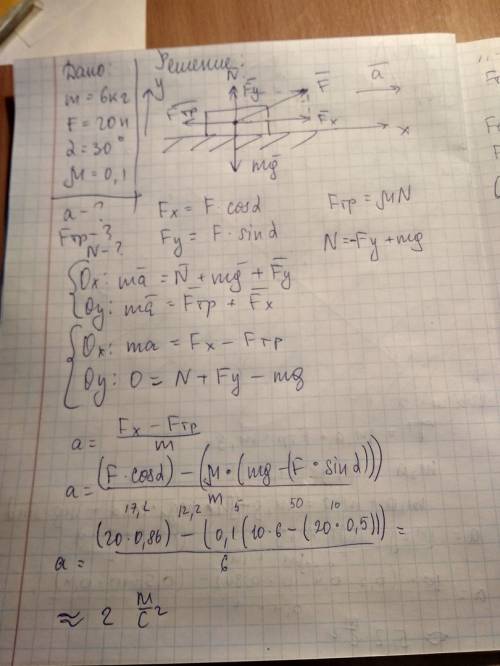 Дано: Решение:
m = 6кг
F = 20н
α = 30°
μ = 0,1
y N F̄y F̄ ā
F̄тр F̄x x
mḡ
a - ?
Fтр - ?
N - ?
Fx = F · cosα Fтр = μN
Fy = F · sinα N = -Fy + mg
Ox: mā = N̄ + mḡ + F̄y
Oy: mā = F̄тр + F̄x
Ox: ma = Fx - Fтр
Oy: 0 = N + Fy - mg
a = (Fx - Fтр) / m
a = ((F · cosα) - (μ · (mg - (F · sinα)))) / m
17,2 12,2 5 50 10
a = ((20 · 0,86) - (0,1 (10 · 6 - (20 · 0,5)))) / 6 =
≈ 2 м/с²